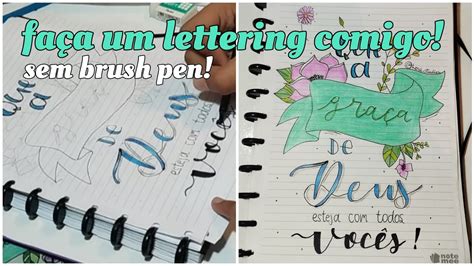 faça um lettering comigo!
sem brush pen!
a
DE
Deus
esteja com todos
você
a
graça
DE
Deus
esteja com todos
vocês!
note
mee